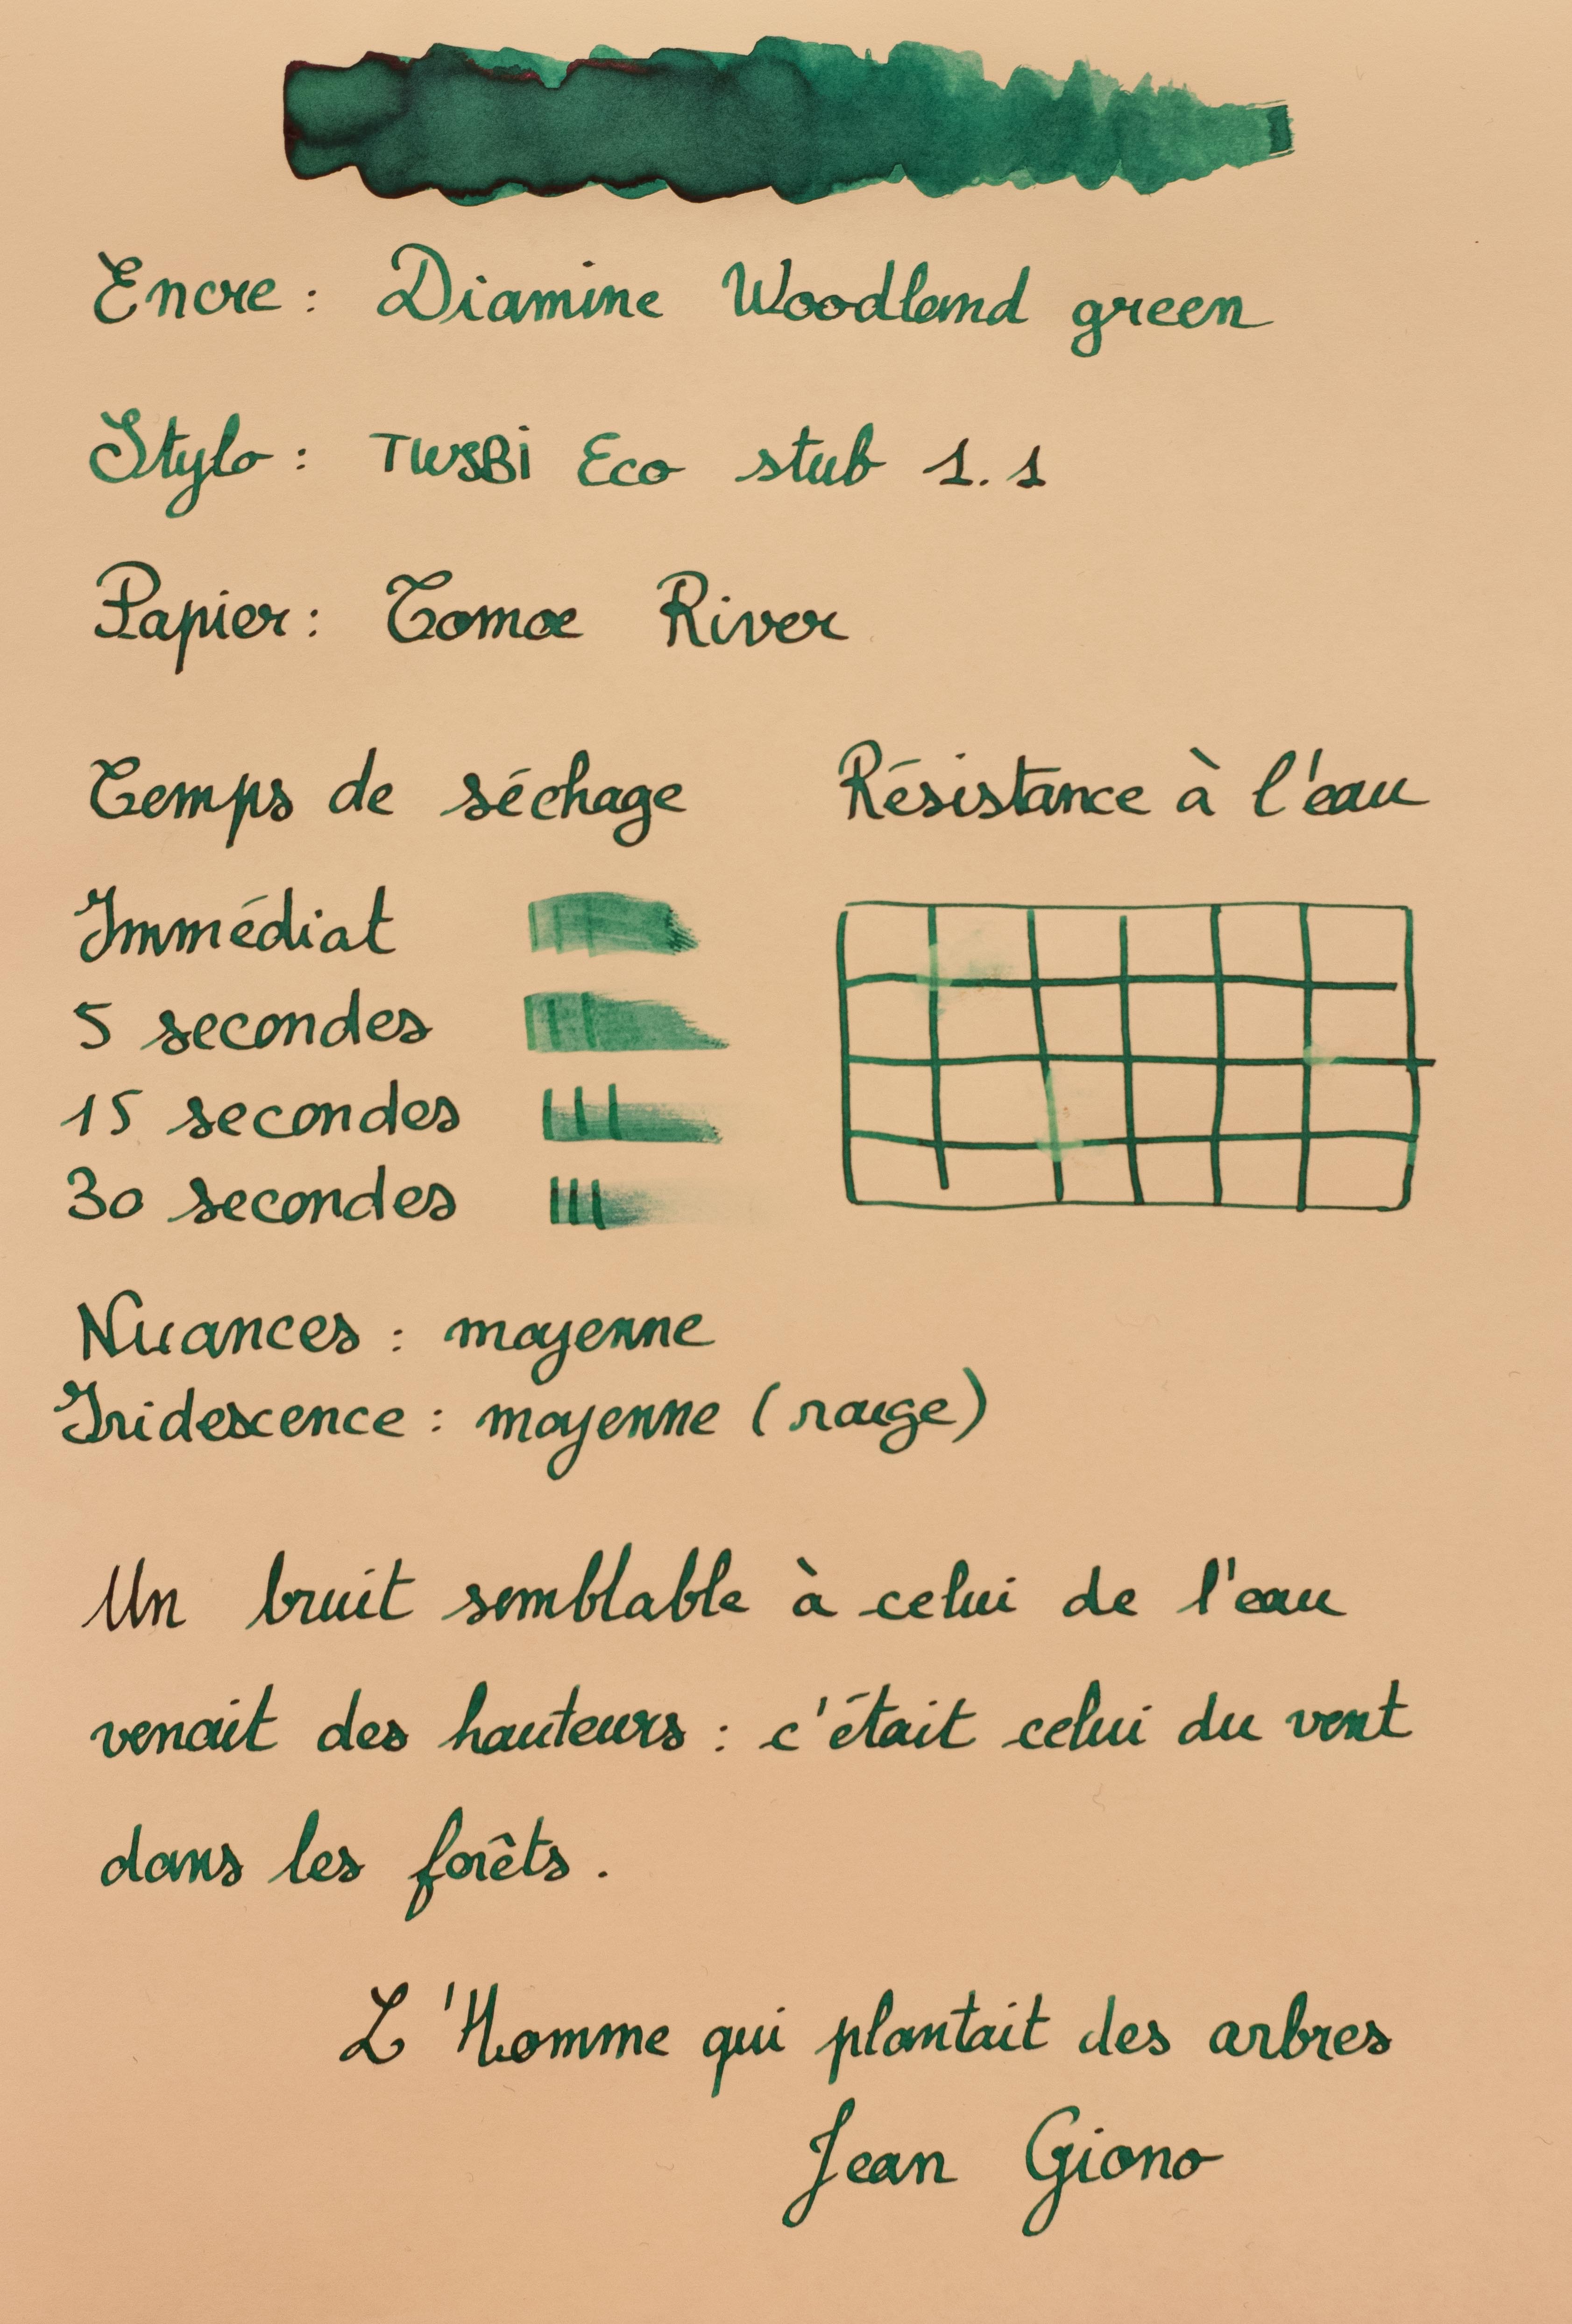 Encre : Diamine Woodland green
Stylo : TWSBi Eco stub 1.1
Papier : Tomoe River
Temps de séchage
Immédiat
5 secondes
15 secondes
30 secondes
Résistance à l'eau
Nuances : moyenne
Iridescence : moyenne (rouge)
Un bruit semblable à celui de l'eau
venait des hauteurs : c'était celui du vent
dans les forêts.
L'Homme qui plantait des arbres
Jean Giono